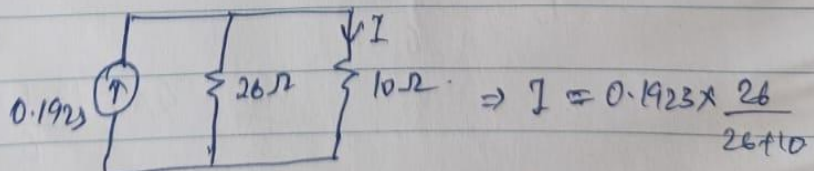 I
0.1923
26Ω
10Ω
⇒ I = 0.1923 × 26
26+10